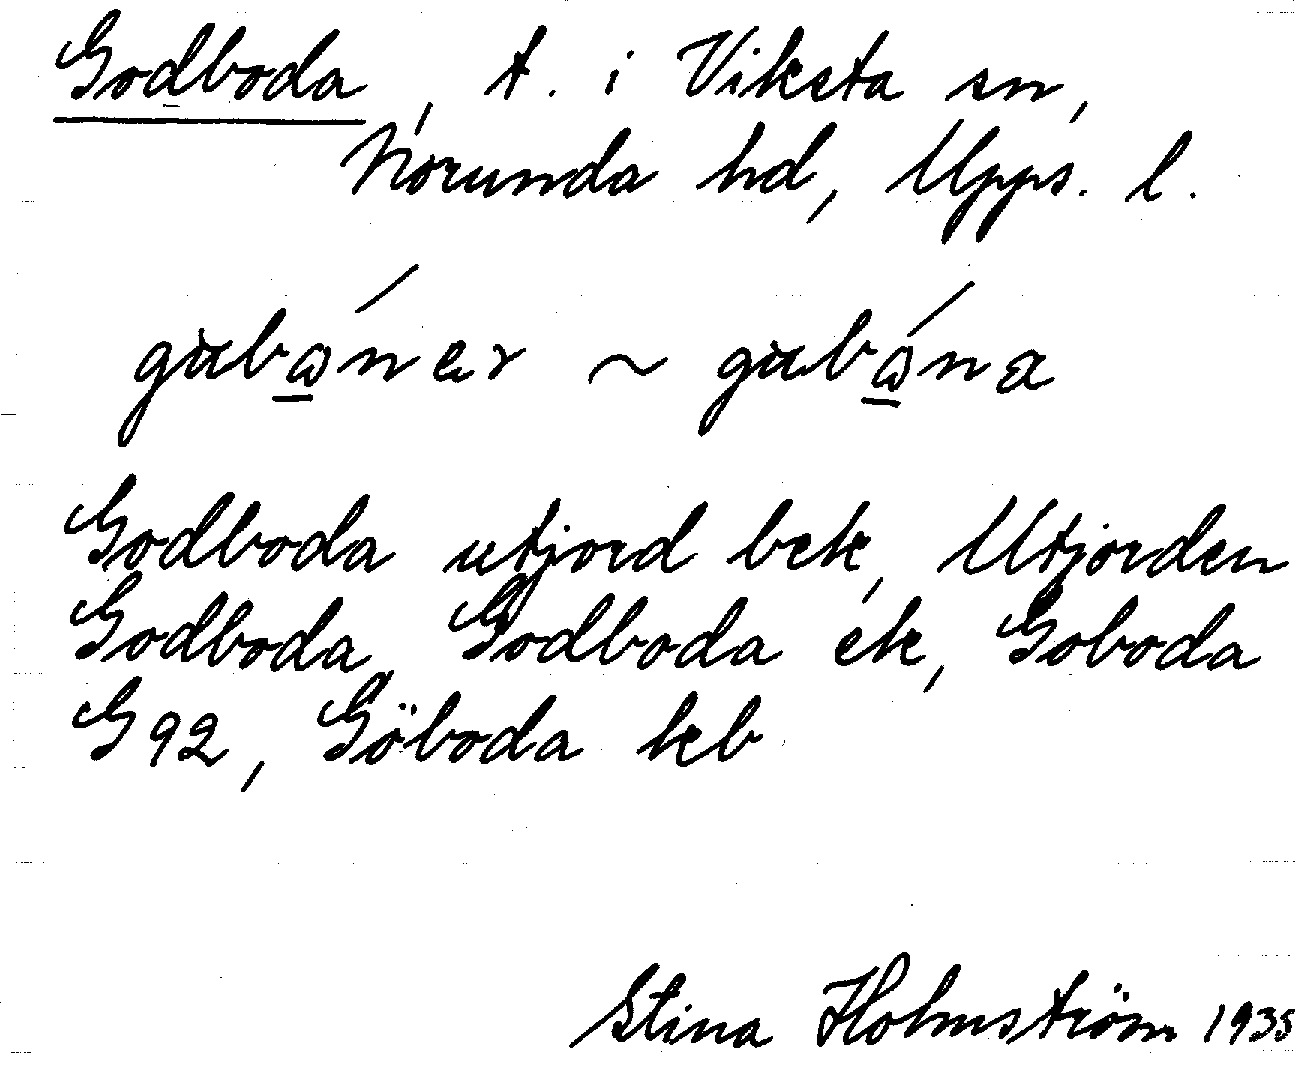 Godboda, t. i Viksta sn,
Norunda hd, Upps. l.
gubåner ~ gubåna
Godboda utjord bek, Utjorden
Godboda, Godboda ek, Goboda
G 92, Göboda kb
Stina Holmström 1935